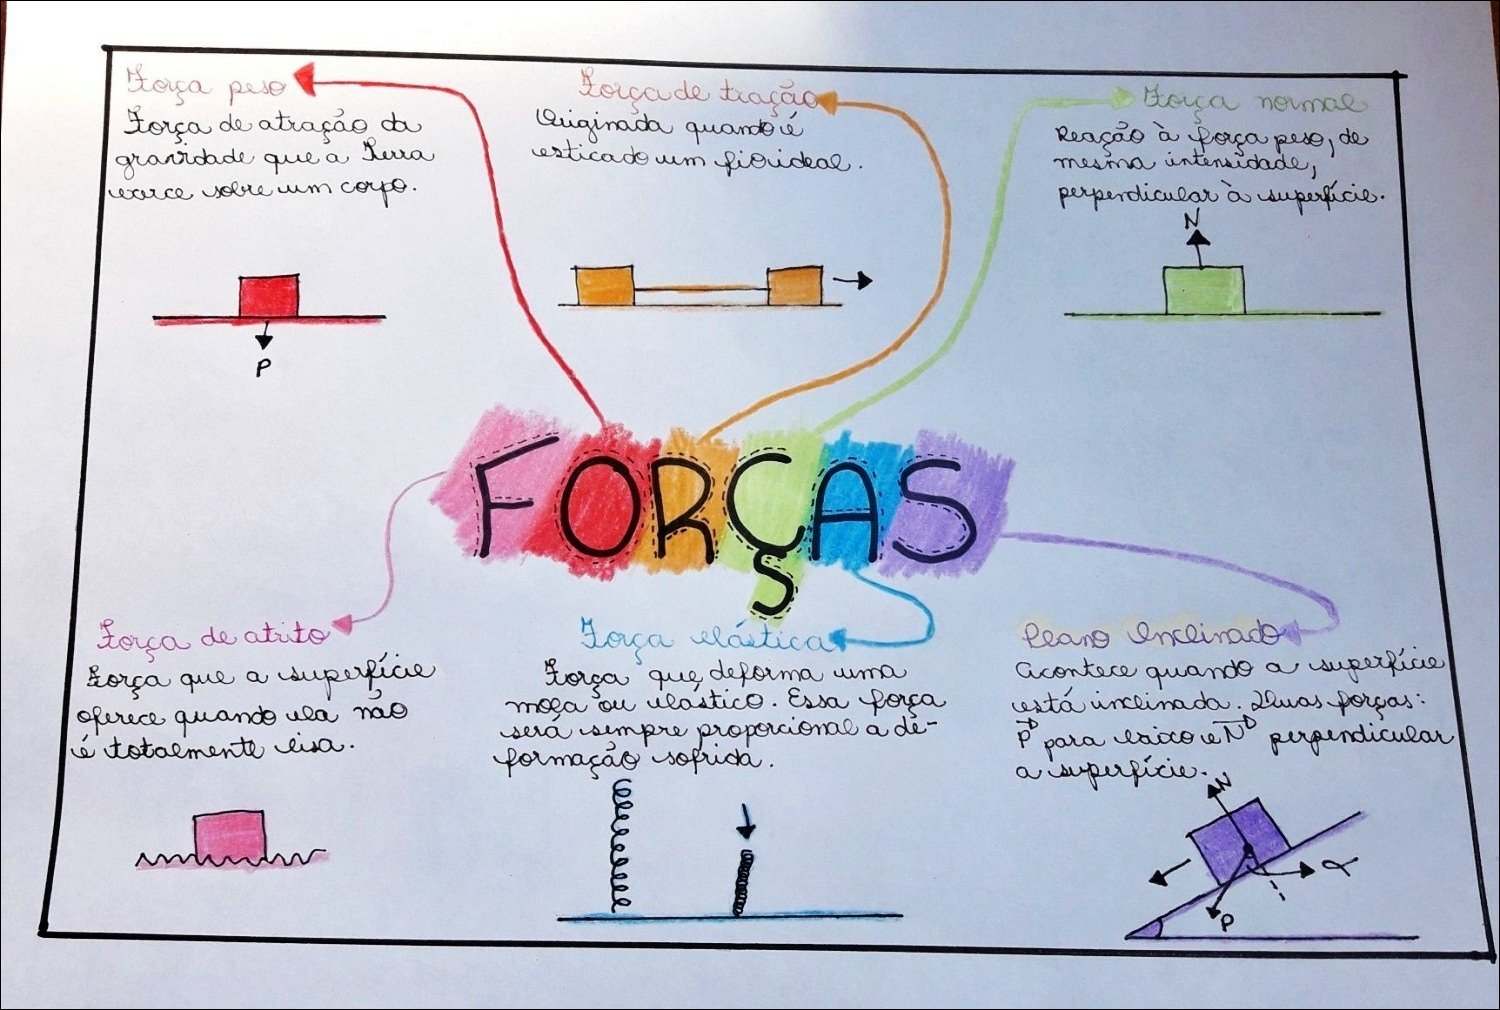 Força peso
Força de atração da
gravidade que a Terra
exerce sobre um corpo.
P
Força de tração
Originada quando é
esticado um fio ideal.
Força normal
Reação à força peso, de
mesma intensidade,
perpendicular à superfície.
N
FORÇAS
Força de atrito
Força que a superfície
oferece quando ela não
é totalmente lisa.
Força elástica
Força que deforma uma
mola ou elástico. Essa força
será sempre proporcional a de-
formação sofrida.
Plano Inclinado
Acontece quando a superfície
está inclinada. Duas forças:
P para baixo e N perpendicular
a superfície.
N
P